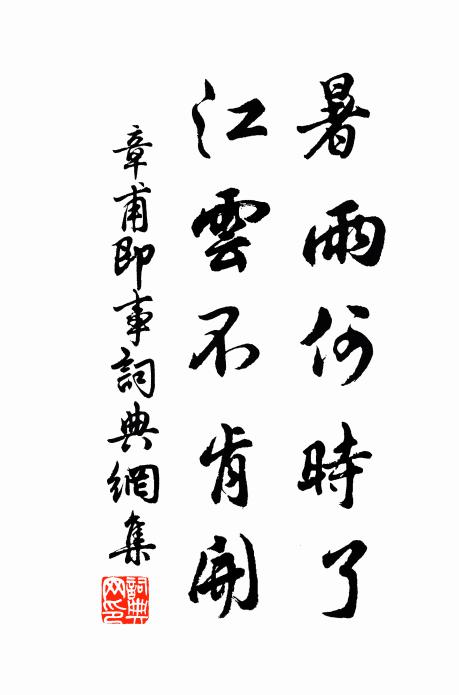 暑雨何時了
江雲不肯開
章甫即事詞典網集
詞典
网印